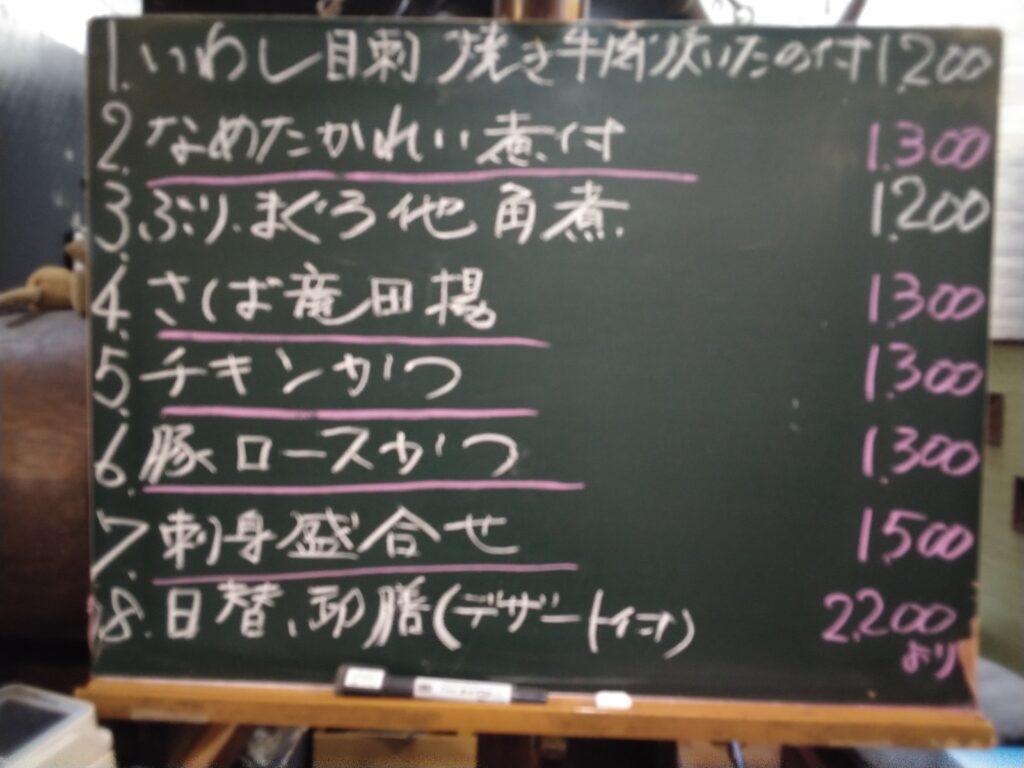 1. いわし目刺 焼き牛肉炊いたの付 1,200
2. なめたかれい煮付 1,300
3. ぶり、まぐろ他角煮 1,200
4. さば竜田揚 1,300
5. チキンかつ 1,300
6. 豚ロースかつ 1,300
7. 刺身盛合せ 1,500
8. 日替、御膳(デザート付) 2,200
より